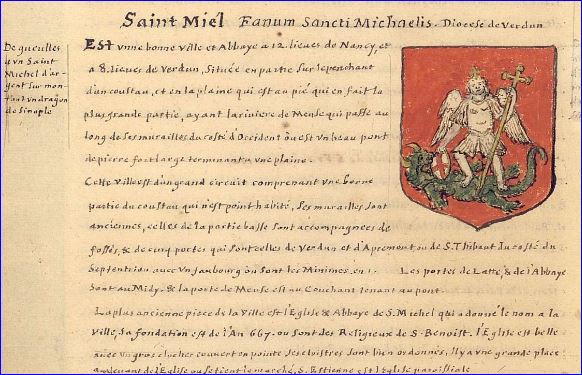 Saint Miel Fanum Sancti Michaelis. Diocese de Verdun
De gueulles
a vn Saint
Michel d'ar-
gent sur mon-
tant vn dragon
de sinople
Est vnne bonne ville et Abbaye a 12. lieues de Nancy, et
a 8. lieues de Verdun, Située en partie sur le penchant
d'un coustau, et en la plaine qui est au pié qui en fait la
plus grande partie, ayant la riuiere de Meuse qui passe au
long de ses murailles du costé d'Occident où est vn beau pont
de pierre fort large terminant a vne plaine.
Cette ville est d'un grand circuit comprenant vne bonne
partie du coustau qui n'est point habité, Ses murailles sont
anciennes, celles de la partie basse sont accompagnees de
fossés, & de cinq portes qui sont celles de Verdun et d'Apremont ou de S. Thibaut du costé du
Septentrion avec vn fauxbourg où sont les Minimes. Les portes de Latte, & de l'Abbaye
sont au Midy. & la porte de Meuse est au Couchant tenant au pont
La plus ancienne piece de la Ville est l'Eglise & Abbaye de S. Michel qui a donné le nom a la
Ville, Sa fondation est de l'An 667. ou sont des Religieux de S. Benoist. l'Eglise est belle
avec vn gros clocher couvert en pointe ses cloistres sont bien ordonnés, Il y a vne grande place
au devant de l'Eglise ou se tient le marché, S. Estienne est l'Eglise paroissiale